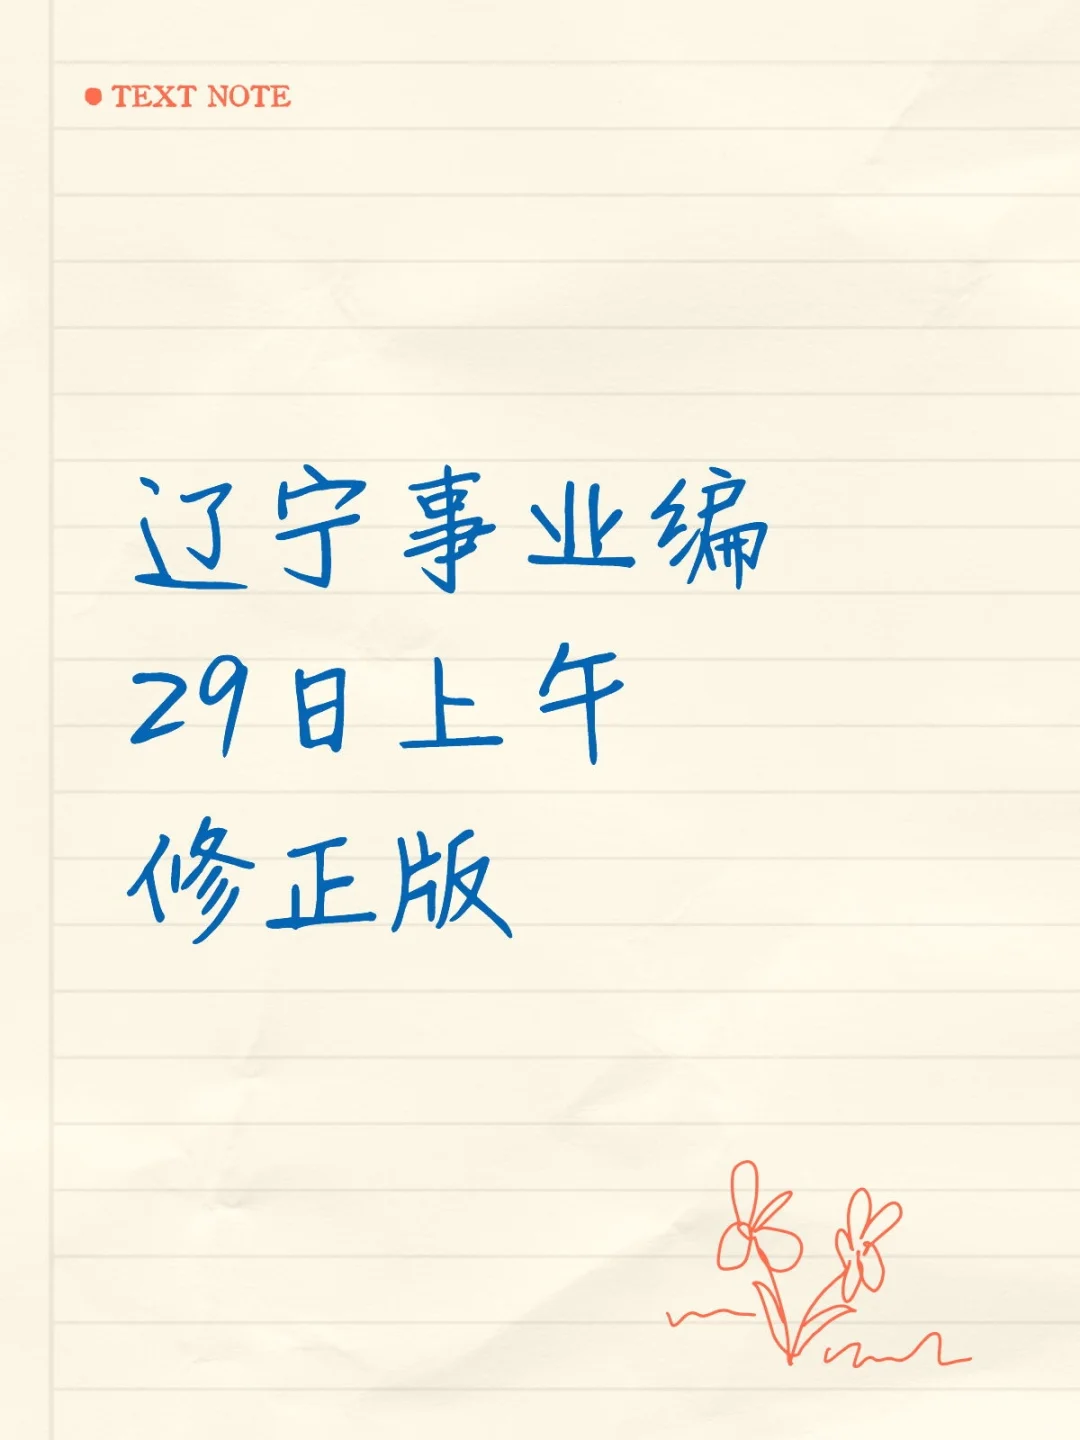 TEXT NOTE
辽宁事业编
29日上午
修正版